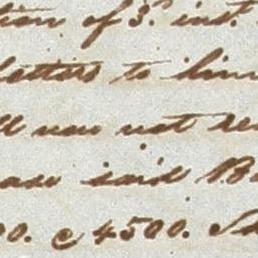 tion of 3d inst.
letters to him
ll now not
said B
00. c 4500.